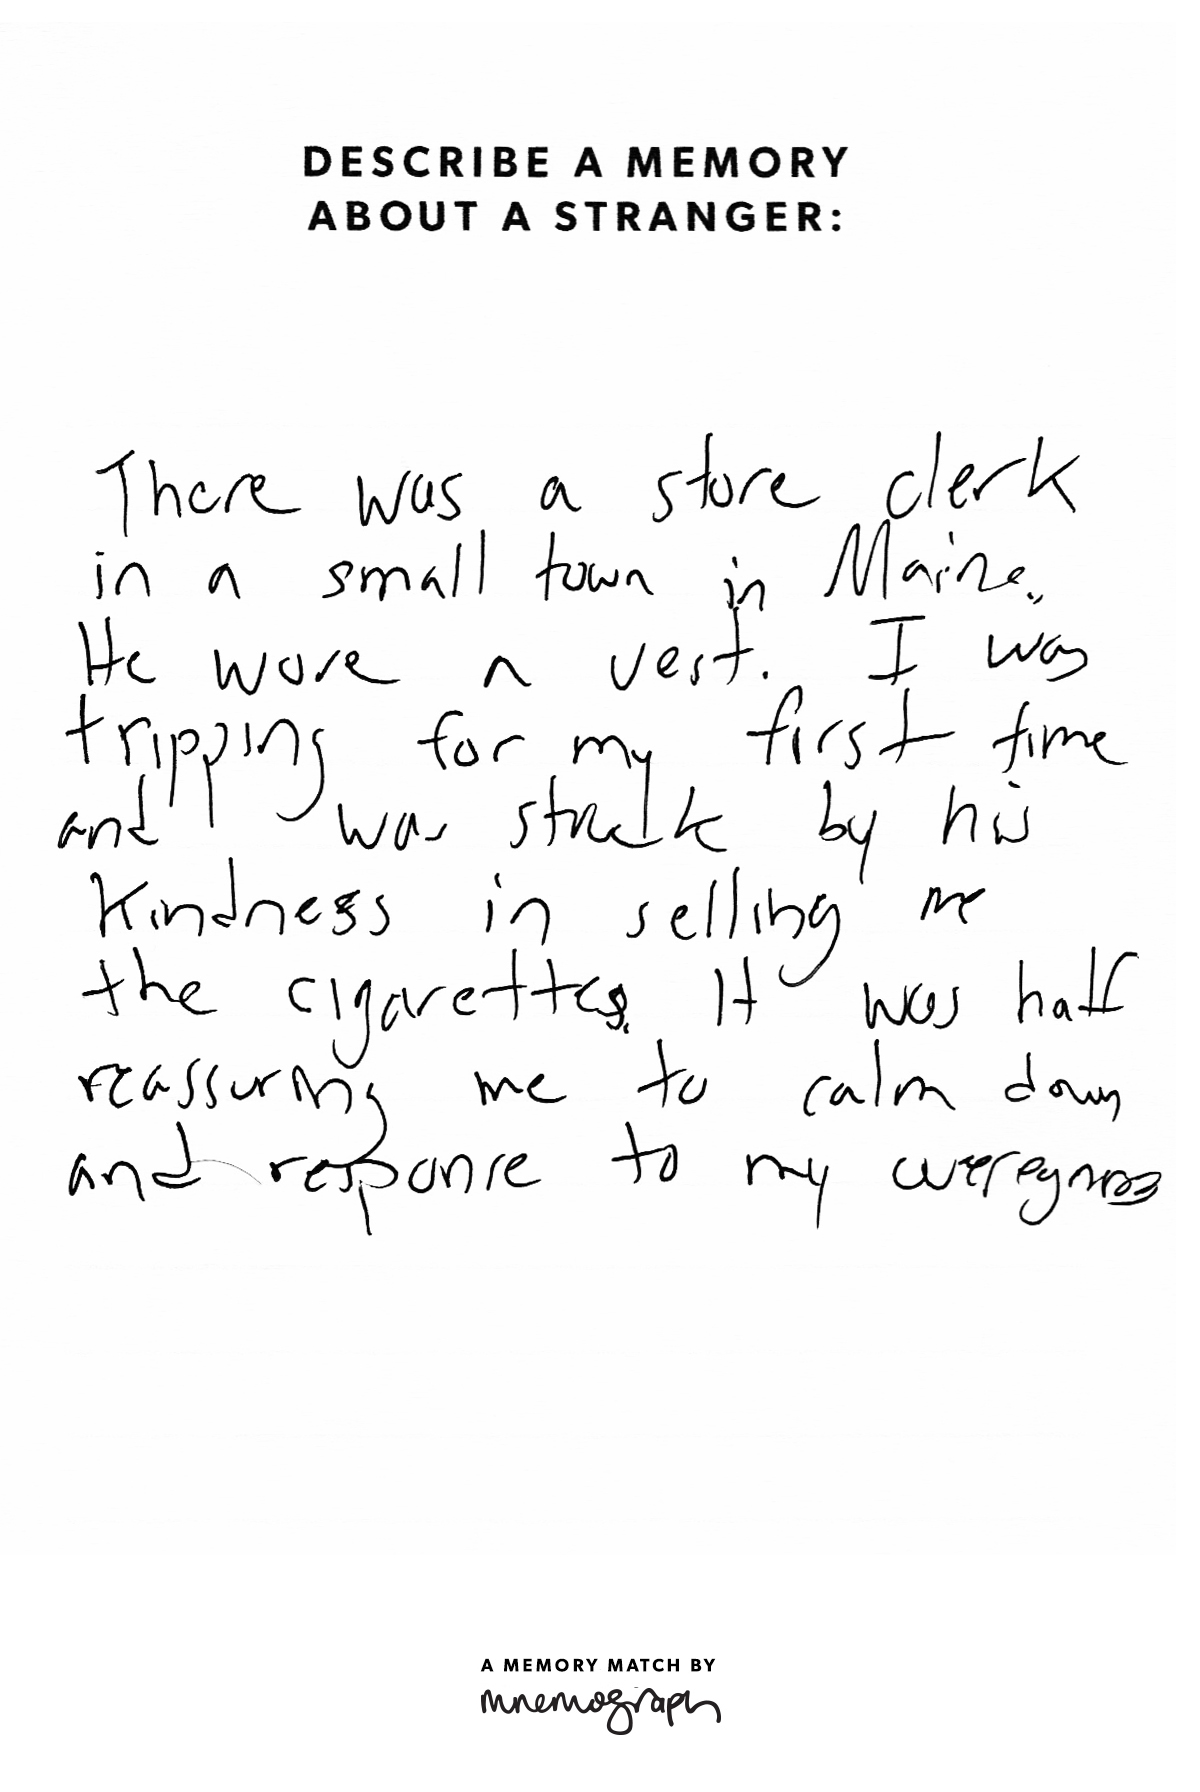 DESCRIBE A MEMORY
ABOUT A STRANGER:
There was a store clerk
in a small town in Maine.
He wore a vest. I was
tripping for my first time
and was struck by his
kindness in selling me
the cigarettes. It was half
reassuring me to calm down
and response to my
A MEMORY MATCH BY
mnemograph